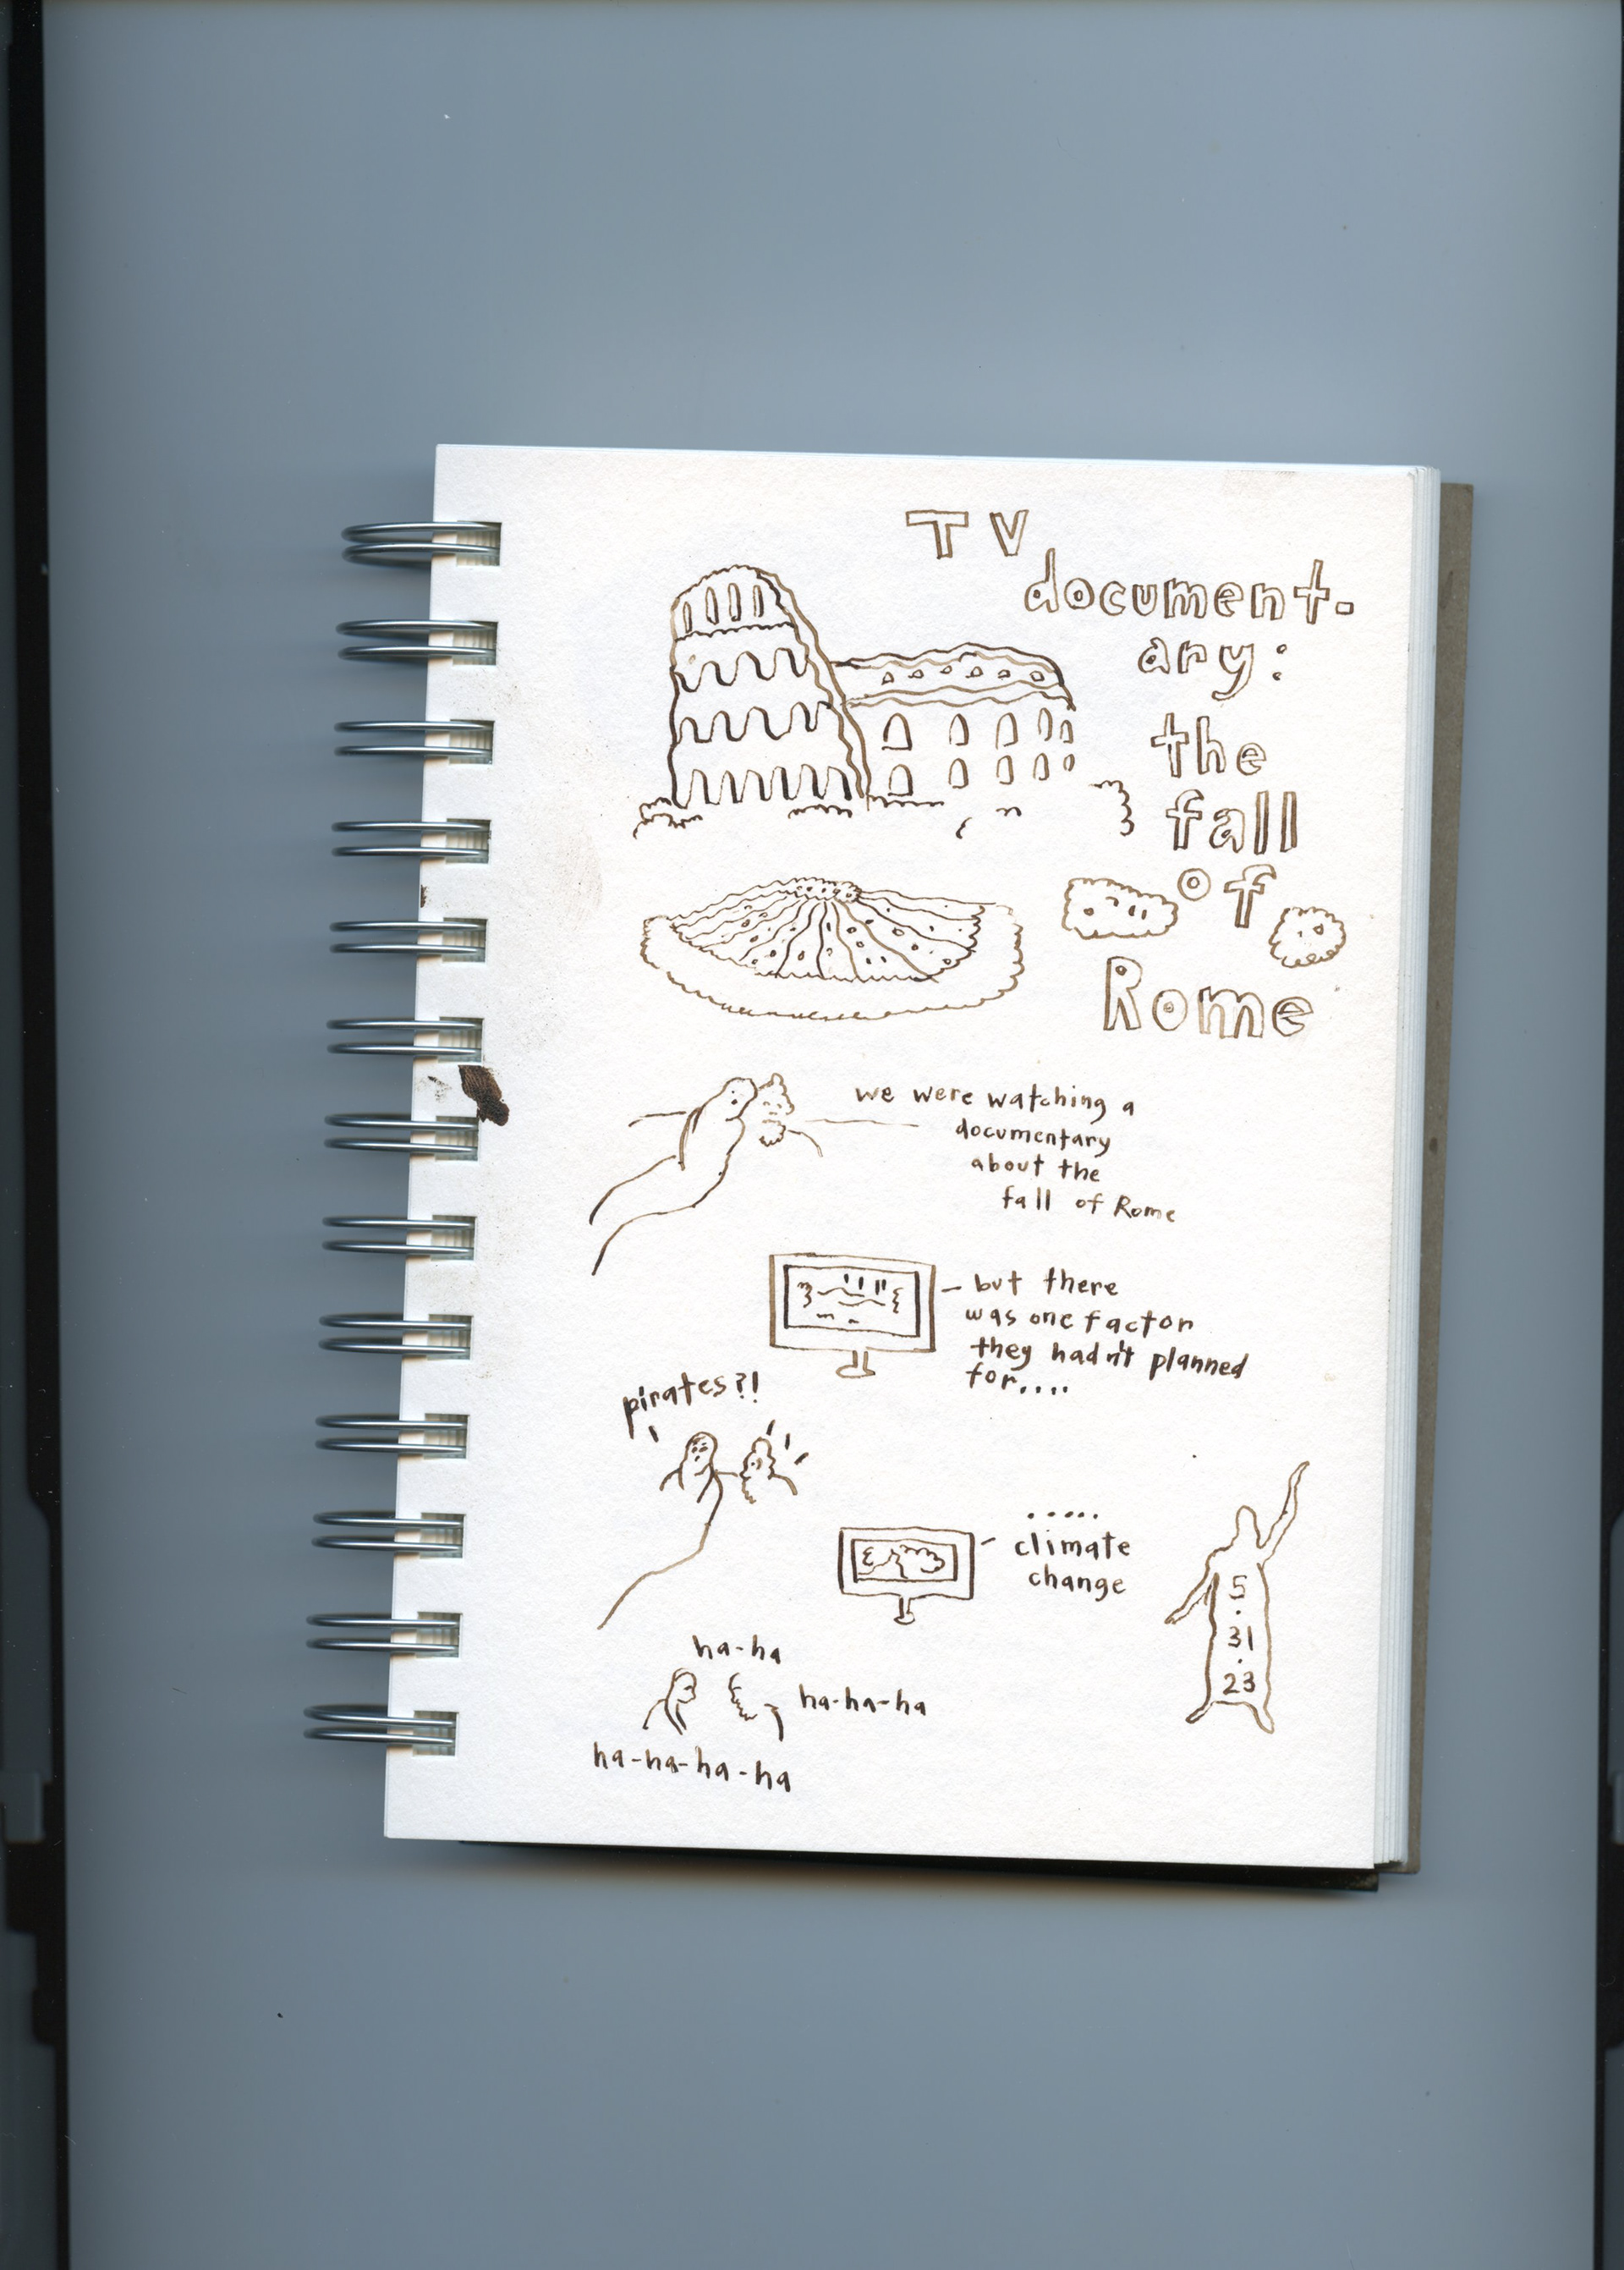 TV
document-
ary:
the
fall
of
Rome
we were watching a
documentary
about the
fall of Rome
- but there
was one factor
they hadn't planned
for....
pirates?!
.....
climate
change
5
.
31
.
23
ha-ha
ha-ha-ha
ha-ha-ha-ha